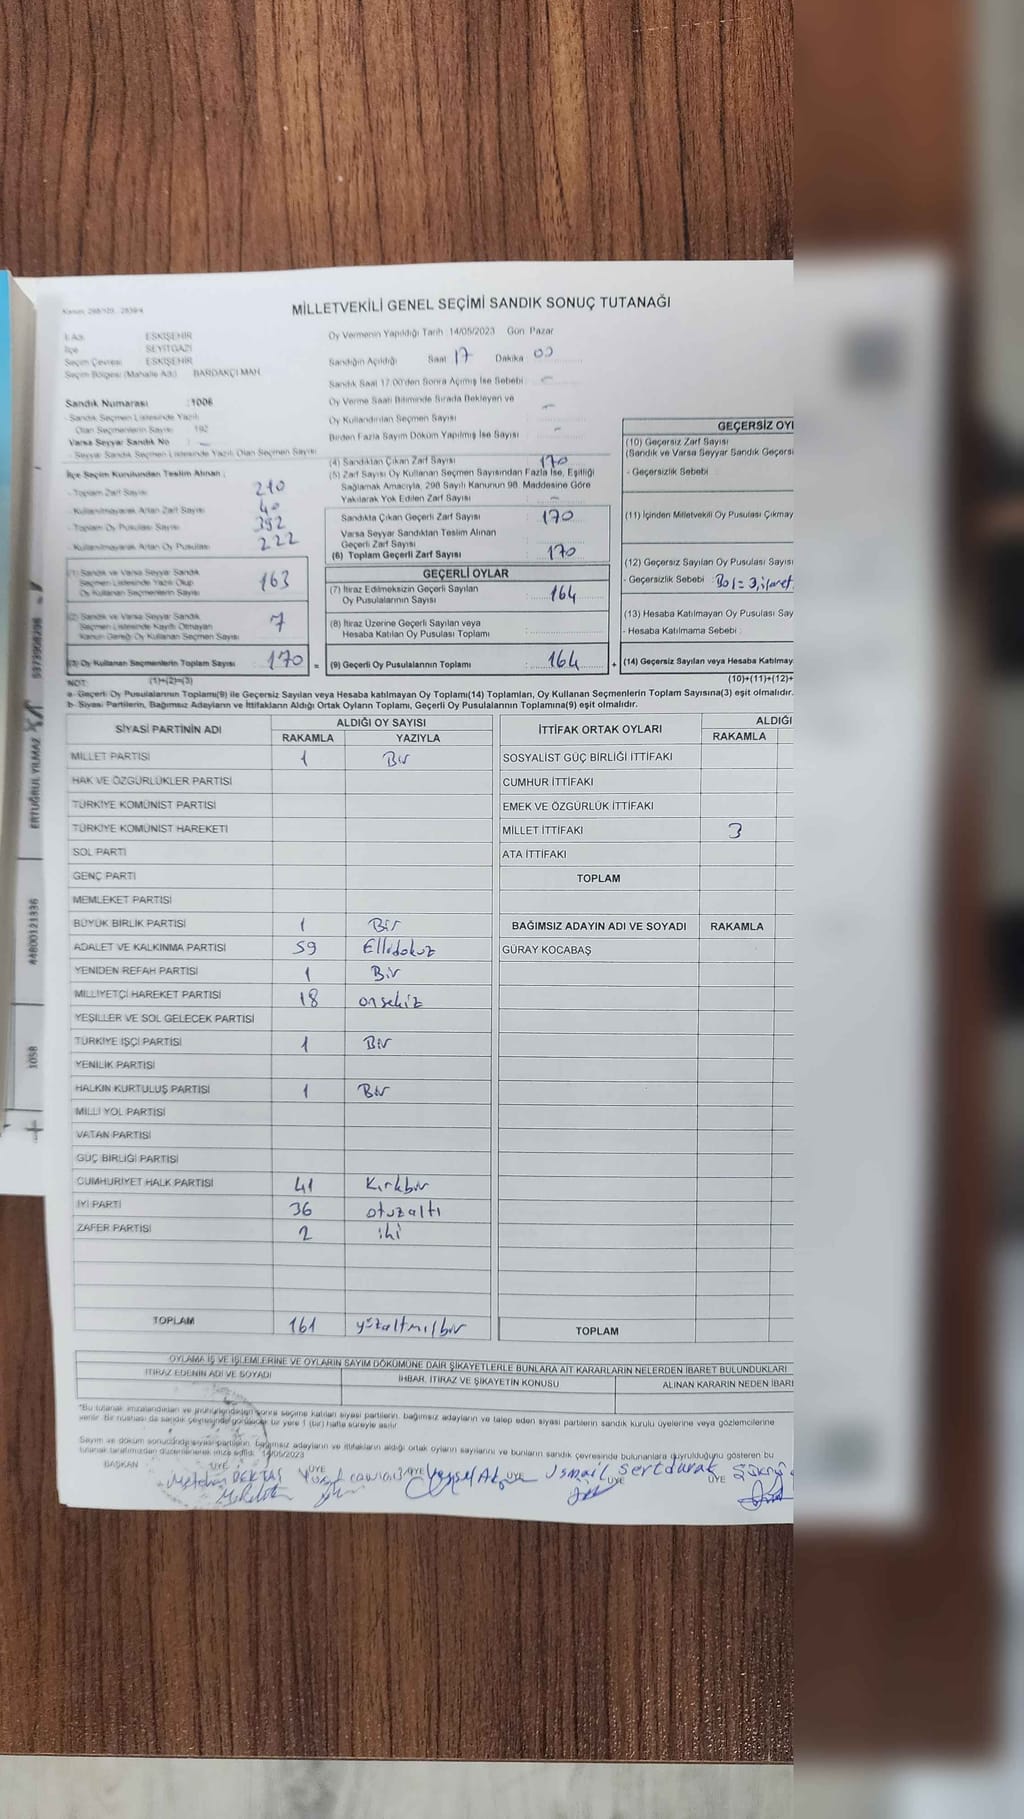 MİLLETVEKİLİ GENEL SEÇİMİ SANDIK SONUÇ TUTANAĞI
İl Adı ESKİŞEHİR
İlçe SEYİTGAZİ
Seçim Çevresi ESKİŞEHİR
Seçim Bölgesi (Mahalle Adı) BARDAKÇI MAH.
Sandık Numarası :1006
- Sandık Seçmen Listesinde Yazılı
Olan Seçmenlerin Sayısı 192
Varsa Seyyar Sandık No
- Seyyar Sandık Seçmen Listesinde Yazılı Olan Seçmen Sayısı
Oy Vermenin Yapıldığı Tarih :14/05/2023 Gün: Pazar
Sandığın Açıldığı Saat 17 Dakika 00
Sandık Saat 17.00'den Sonra Açılmış İse Sebebi : -
Oy Verme Saati Bitiminde Sırada Bekleyen ve
Oy Kullandırılan Seçmen Sayısı -
Birden Fazla Sayım Döküm Yapılmış İse Sayısı -
İlçe Seçim Kurulundan Teslim Alınan ;
- Toplam Zarf Sayısı 210
- Kullanılmayarak Artan Zarf Sayısı 40
- Toplam Oy Pusulası Sayısı 392
- Kullanılmayarak Artan Oy Pusulası 222
(1) Sandık ve Varsa Seyyar Sandık
Seçmen Listesinde Yazılı Olup
Oy Kullanan Seçmenlerin Sayısı 163
(2) Sandık ve Varsa Seyyar Sandık
Seçmen Listesinde Kayıtlı Olmayan
Kanun Gereği Oy Kullanan Seçmen Sayısı 7
(3) Oy Kullanan Seçmenlerin Toplam Sayısı 170 =
(1)+(2)=(3)
(4) Sandıktan Çıkan Zarf Sayısı 170
(5) Zarf Sayısı Oy Kullanan Seçmen Sayısından Fazla İse, Eşitliği
Sağlamak Amacıyla, 298 Sayılı Kanunun 98. Maddesine Göre
Yakılarak Yok Edilen Zarf Sayısı -
Sandıkta Çıkan Geçerli Zarf Sayısı : 170
Varsa Seyyar Sandıktan Teslim Alınan
Geçerli Zarf Sayısı
(6) Toplam Geçerli Zarf Sayısı : 170
GEÇERLİ OYLAR
(7) İtiraz Edilmeksizin Geçerli Sayılan
Oy Pusulalarının Sayısı : 164
(8) İtiraz Üzerine Geçerli Sayılan veya
Hesaba Katılan Oy Pusulası Toplamı
(9) Geçerli Oy Pusulalarının Toplamı : 164 +
GEÇERSİZ OY
(10) Geçersiz Zarf Sayısı
(Sandık ve Varsa Seyyar Sandık Geçersi
- Geçersizlik Sebebi
(11) İçinden Milletvekili Oy Pusulası Çıkmay
(12) Geçersiz Sayılan Oy Pusulası Sayısı
- Geçersizlik Sebebi : Boş = 3, işaret
(13) Hesaba Katılmayan Oy Pusulası Say
- Hesaba Katılmama Sebebi :
(14) Geçersiz Sayılan veya Hesaba Katılmay
(10)+(11)+(12)+
NOT:
a- Geçerli Oy Pusulalarının Toplamı(9) ile Geçersiz Sayılan veya Hesaba katılmayan Oy Toplamı(14) Toplamları, Oy Kullanan Seçmenlerin Toplam Sayısına(3) eşit olmalıdır.
b- Siyasi Partilerin, Bağımsız Adayların ve İttifakların Aldığı Ortak Oyların Toplamı, Geçerli Oy Pusulalarının Toplamına(9) eşit olmalıdır.
SİYASİ PARTİNİN ADI ALDIĞI OY SAYISI
RAKAMLA YAZIYLA
MİLLET PARTİSİ 1 Bir
HAK VE ÖZGÜRLÜKLER PARTİSİ
TÜRKİYE KOMÜNİST PARTİSİ
TÜRKİYE KOMÜNİST HAREKETİ
SOL PARTİ
GENÇ PARTİ
MEMLEKET PARTİSİ
BÜYÜK BİRLİK PARTİSİ 1 Bir
ADALET VE KALKINMA PARTİSİ 59 Ellidokuz
YENİDEN REFAH PARTİSİ 1 Bir
MİLLİYETÇİ HAREKET PARTİSİ 18 onsekiz
YEŞİLLER VE SOL GELECEK PARTİSİ
TÜRKİYE İŞÇİ PARTİSİ 1 Bir
YENİLİK PARTİSİ
HALKIN KURTULUŞ PARTİSİ 1 Bir
MİLLİ YOL PARTİSİ
VATAN PARTİSİ
GÜÇ BİRLİĞİ PARTİSİ
CUMHURİYET HALK PARTİSİ 41 Kırkbir
İYİ PARTİ 36 otuzaltı
ZAFER PARTİSİ 2 iki
TOPLAM 161 yüzaltmışbir
İTTİFAK ORTAK OYLARI ALDIĞI
RAKAMLA
SOSYALİST GÜÇ BİRLİĞİ İTTİFAKI
CUMHUR İTTİFAKI
EMEK VE ÖZGÜRLÜK İTTİFAKI
MİLLET İTTİFAKI 3
ATA İTTİFAKI
TOPLAM
BAĞIMSIZ ADAYIN ADI VE SOYADI RAKAMLA
GÜRAY KOCABAŞ
TOPLAM
OYLAMA İŞ VE İŞLEMLERİNE VE OYLARIN SAYIM DÖKÜMÜNE DAİR ŞİKAYETLERLE BUNLARA AİT KARARLARIN NELERDEN İBARET BULUNDUKLARI
İTİRAZ EDENİN ADI VE SOYADI İHBAR, İTİRAZ VE ŞİKAYETİN KONUSU ALINAN KARARIN NEDEN İBARE
*Bu tutanak imzalandıktan ve mühürlendikten sonra seçime katılan siyasi partilerin, bağımsız adayların ve talep eden siyasi partilerin sandık kurulu üyelerine veya gözlemcilerine
verilir. Bir nüshası da sandık çevresinde görülecek bir yere 1 (bir) hafta süreyle asılır.
Sayım ve döküm sonucunda siyasi partilerin, bağımsız adayların ve ittifakların aldığı ortak oyların sayılarını ve bunların sandık çevresinde bulunanlara duyurulduğunu gösteren bu
tutanak tarafımızdan düzenlenerek imza edildi. 14/05/2023
BAŞKAN ÜYE ÜYE ÜYE ÜYE ÜYE ÜYE
İsmail Sertdurak
ERTUĞRUL YILMAZ
44800121336
1058